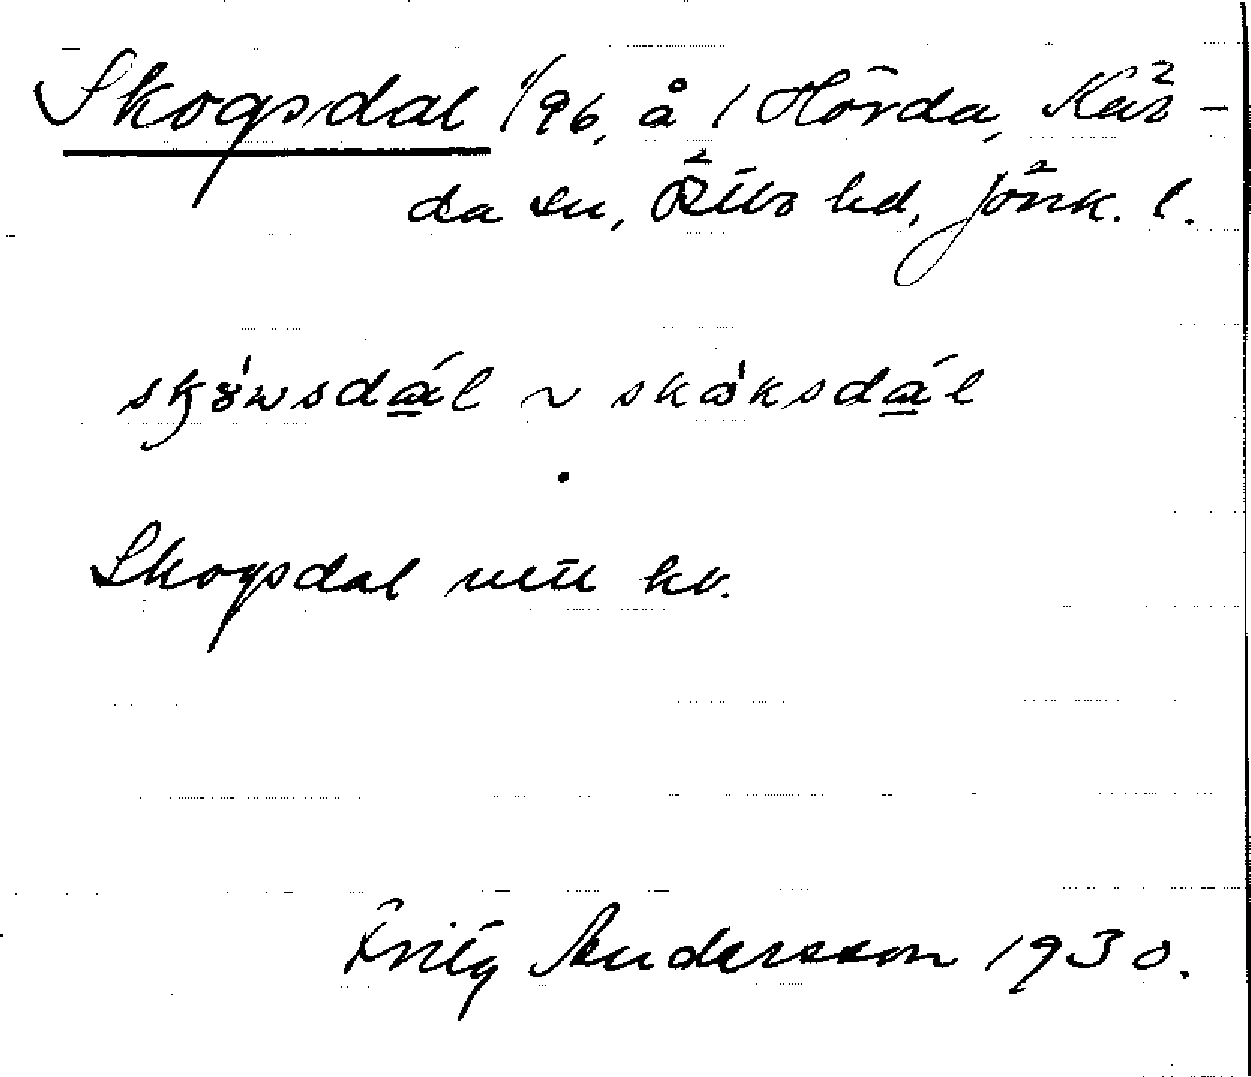 Skogsdal 1/96, å 1 Hörda, Kär-
da sn, Östbo hd, Jönk. l.
skówsdál ~ skóksdál
Skogsdal utt kv.
Fritz Andersson 1930.